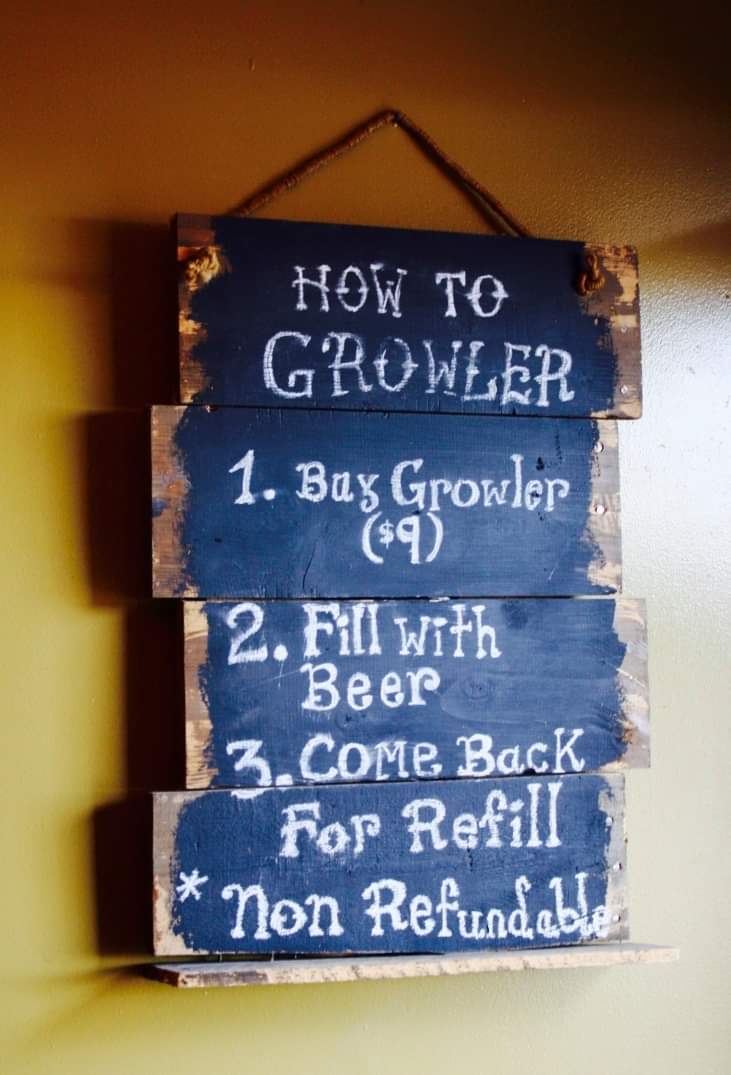 HOW TO
GROWLER
1. Buy Growler
($9)
2. Fill with
Beer
3. Come Back
For Refill
* Non Refundable